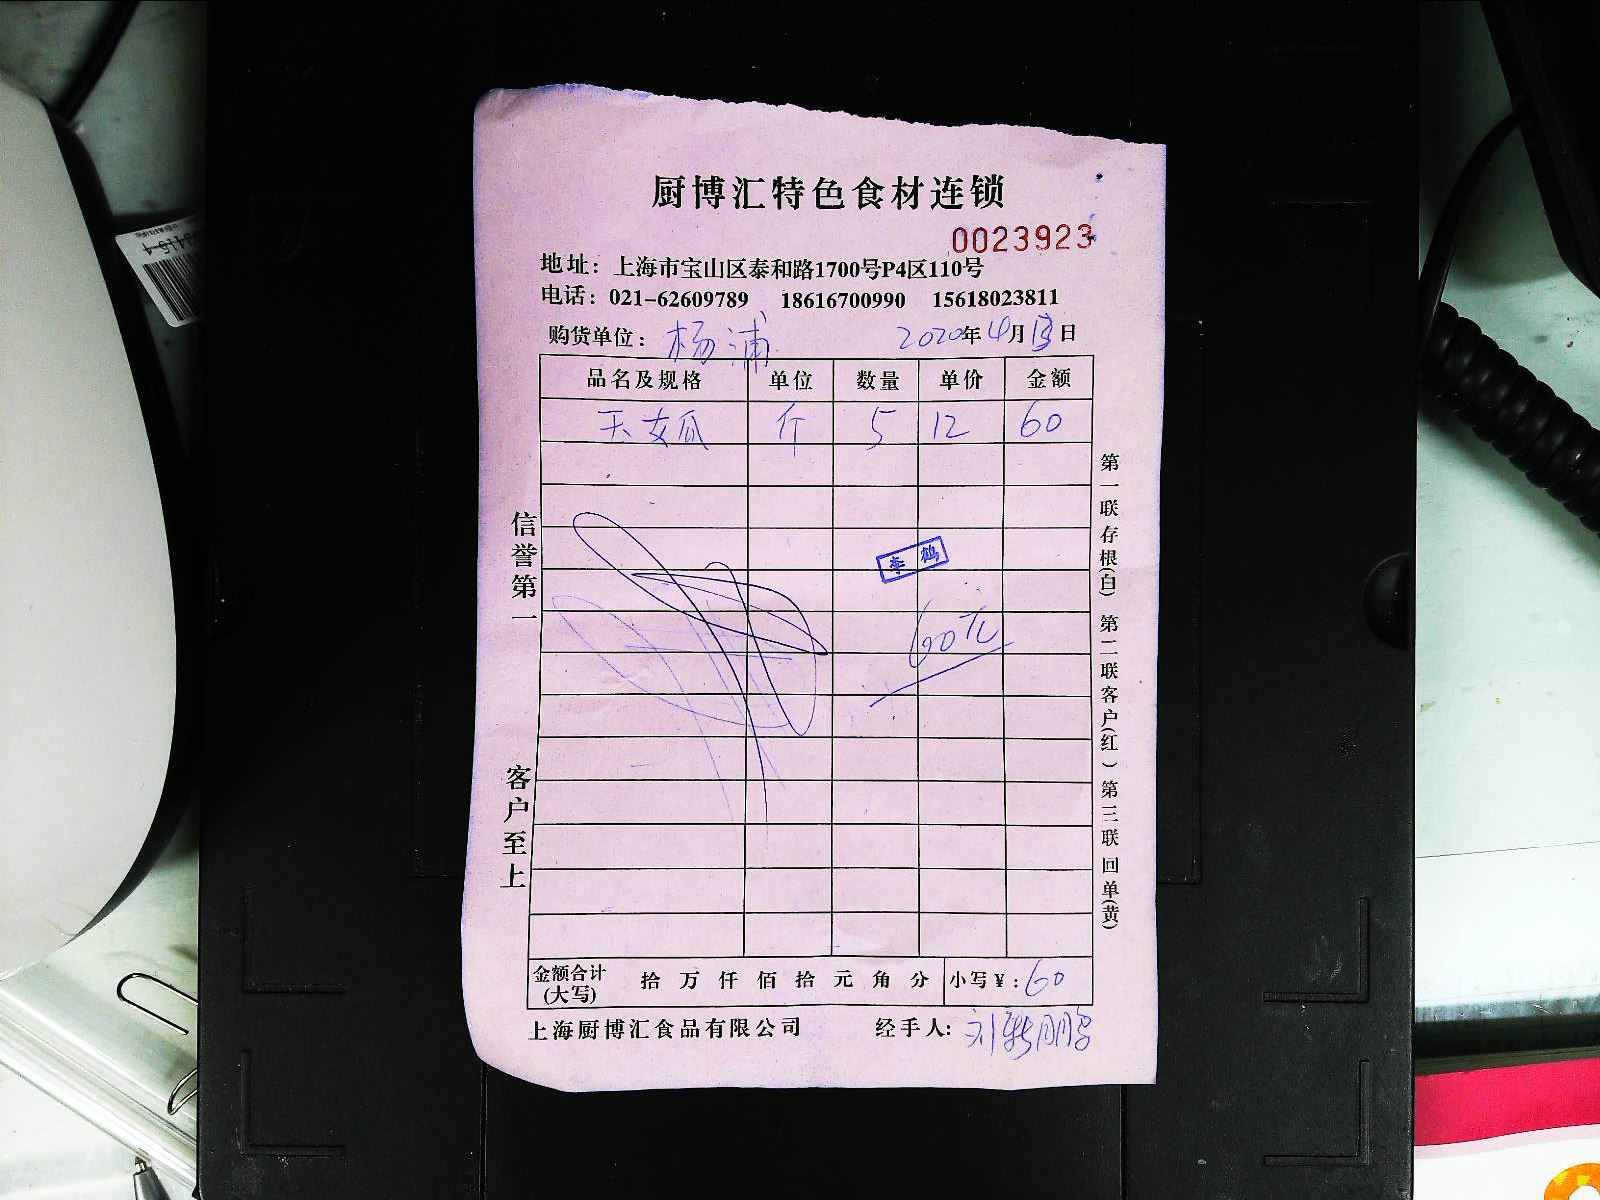 厨博汇特色食材连锁
0023923
地址：上海市宝山区泰和路1700号P4区110号
电话：021-62609789 18616700990 15618023811
购货单位：杨浦 2020年4月13日
品名及规格 单位 数量 单价 金额
天女瓜 斤 5 12 60
李鹤
60元
信誉第一
客户至上
第一联存根(白) 第二联客户(红) 第三联回单(黄)
金额合计(大写) 拾 万 仟 佰 拾 元 角 分 小写¥：60
上海厨博汇食品有限公司 经手人：